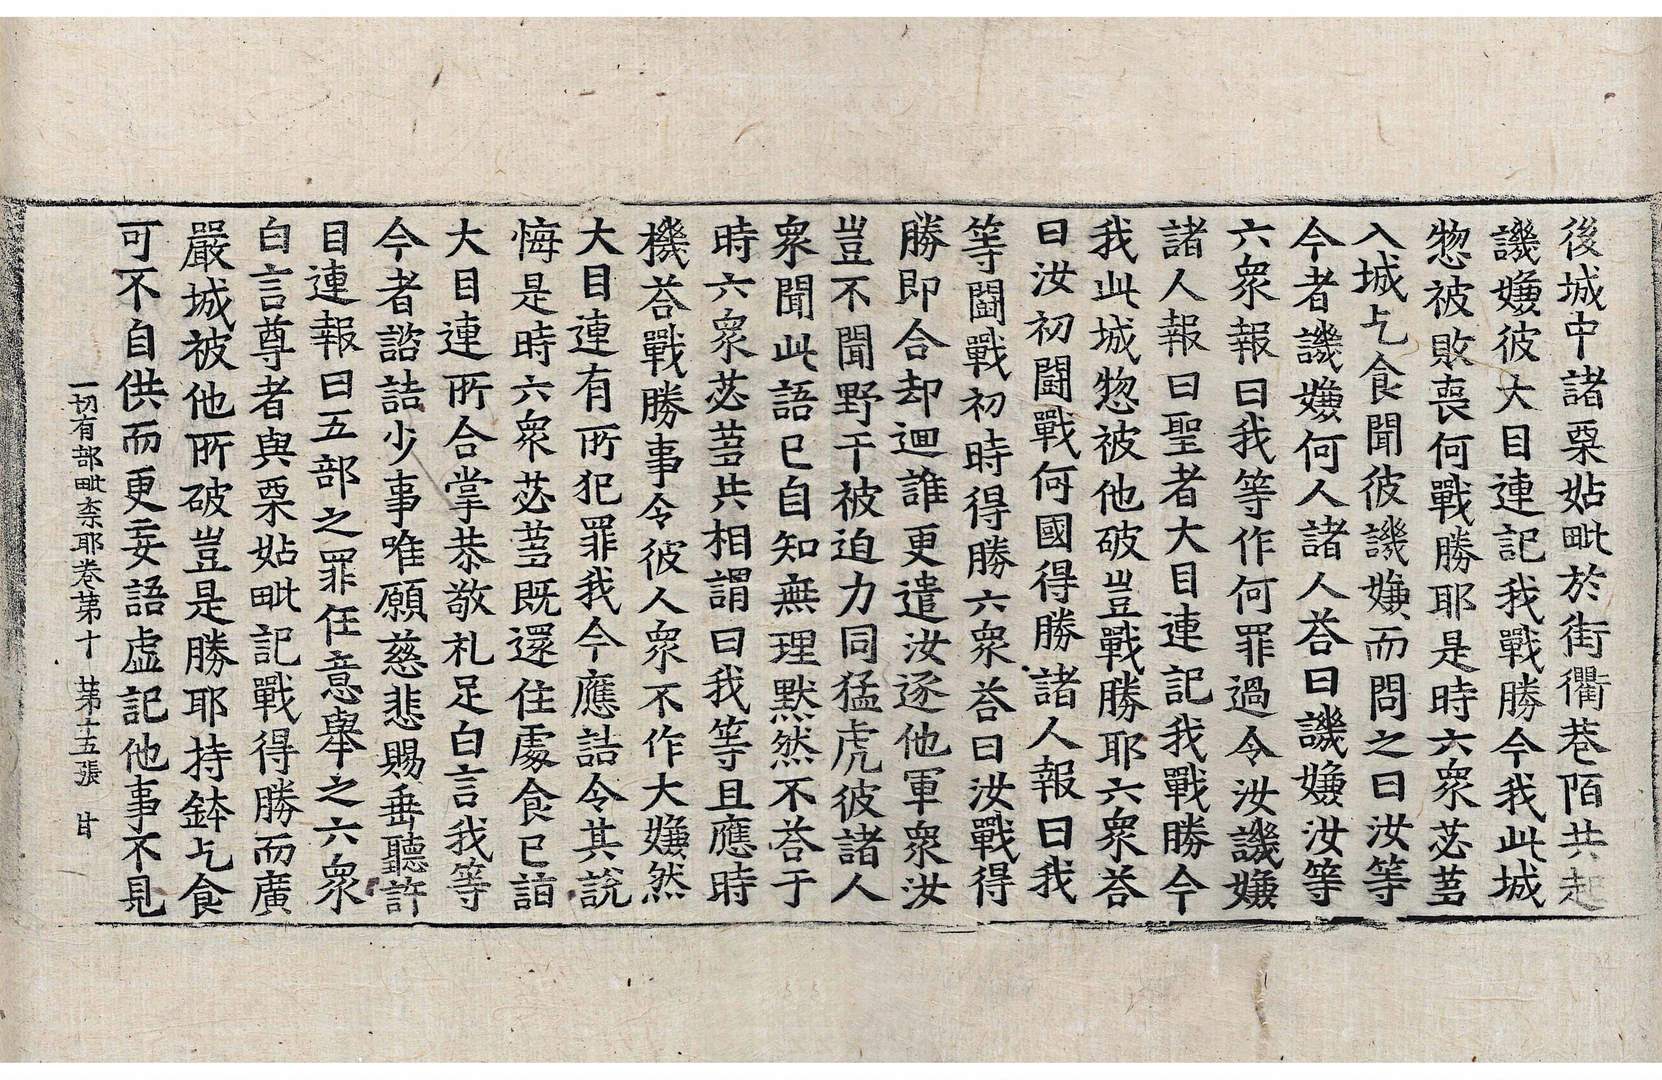 後城中諸栗姑毗於街衢巷陌共起
譏嫌彼大目連記我戰勝今我此城
惣被敗喪何戰勝耶是時六衆苾蒭
入城乞食聞彼譏嫌而問之曰汝等
今者譏嫌何人諸人荅曰譏嫌汝等
六衆報曰我等作何罪過令汝譏嫌
諸人報曰聖者大目連記我戰勝今
我此城惣被他破豈戰勝耶六衆荅
曰汝初鬪戰何國得勝諸人報曰我
等鬪戰初時得勝六衆荅曰汝戰得
勝即合却迴誰更遣汝逐他軍衆汝
豈不聞野干被迫力同猛虎彼諸人
衆聞此語已自知無理默然不荅于
時六衆苾蒭共相謂曰我等且應時
機荅戰勝事令彼人衆不作大嫌然
大目連有所犯罪我今應詰令其說
悔是時六衆苾蒭既還住處食已詣
大目連所合掌恭敬礼足白言我等
今者諮詰少事唯願慈悲賜垂聽許
目連報曰五部之罪任意舉之六衆
白言尊者與栗姑毗記戰得勝而廣
嚴城被他所破豈是勝耶持鉢乞食
可不自供而更妄語虛記他事不見
一切有部毗柰耶卷第十　第十五張　甘